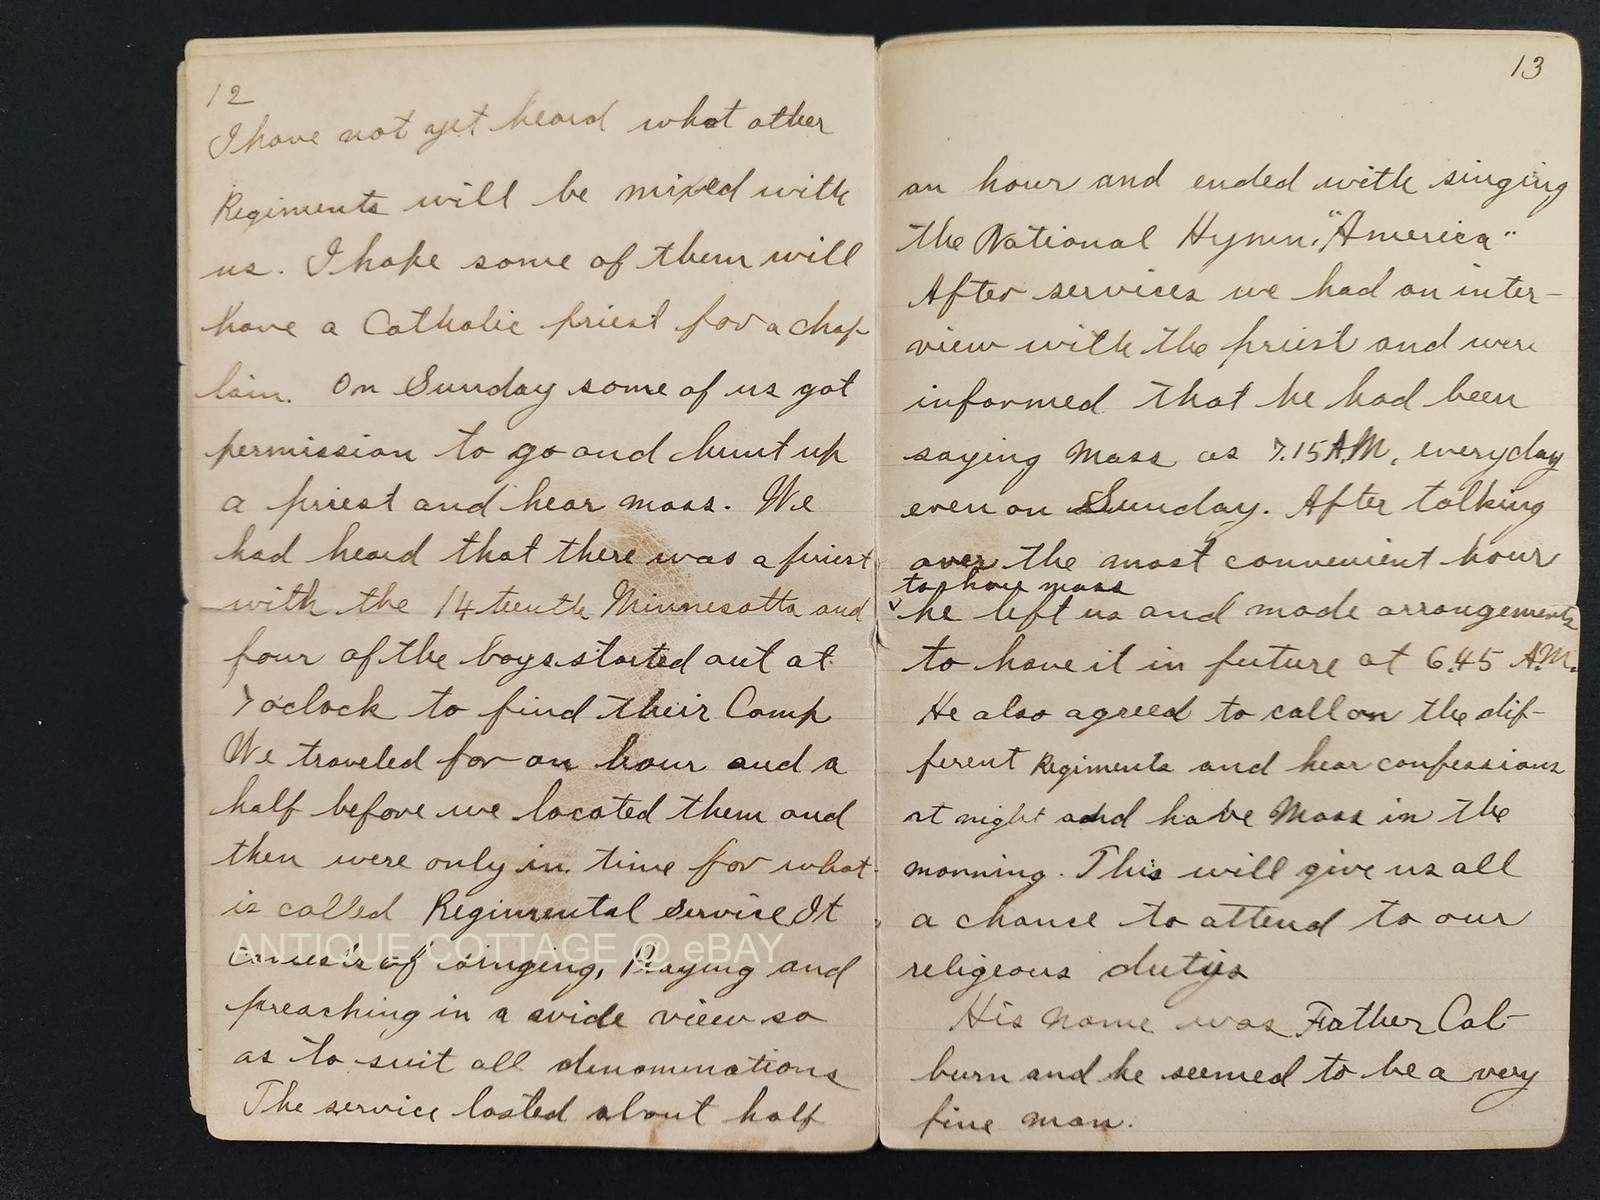 12
I have not yet heard what other
Regiments will be mixed with
us. I hope some of them will
have a Catholic priest for a chap-
lain. On Sunday some of us got
permission to go and hunt up
a priest and hear mass. We
had heard that there was a priest
with the 14 teenth Minnesotta and
four of the boys started out at
7 oclock to find their Camp
We traveled for an hour and a
half before we located them and
then were only in time for what
is called Regimental Servise It
consists of singing, Praying and
preaching in a wide view so
as to suit all denominations
The service lasted about half
ANTIQUE COTTAGE @ eBAY
13
an hour and ended with singing
the National Hymn, "America"
After services we had an inter-
view with the priest and were
informed that he had been
saying Mass as 7.15 A.M, everyday
even on Sunday. After talking
over the most convenient hour
to have mass
he left us and made arrangements
to have it in future at 6.45 A.M.
He also agreed to call on the dif-
ferent Regiments and hear confessions
at night and have Mass in the
morning. This will give us all
a chance to attend to our
religeous dutys
His name was Father Col-
burn and he seemed to be a very
fine man.